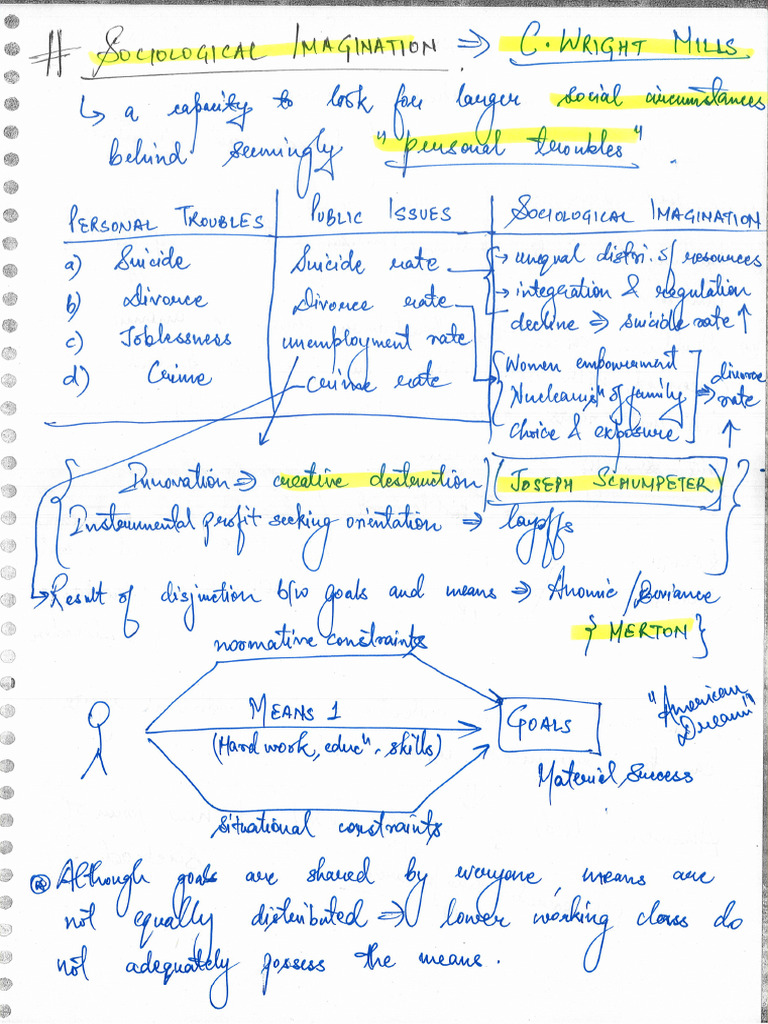 # SOCIOLOGICAL IMAGINATION ⇒ C. WRIGHT MILLS
↳ a capacity to look for larger social circumstances
behind seemingly "personal troubles".
PERSONAL TROUBLES | PUBLIC ISSUES | SOCIOLOGICAL IMAGINATION
a) Suicide | Suicide rate | → unequal distri. of resources
b) Divorce | Divorce rate | → integration & regulation
decline ⇒ suicide rate ↑
c) Joblessness | unemployment rate
d) Crime | crime rate
Women empowerment
Nuclearisⁿ of family ⇒ divorce rate ↑
Choice & exposure
Innovation ⇒ creative destruction (JOSEPH SCHUMPETER)
Instrumental profit seeking orientation ⇒ layoffs
→ Result of disjunction b/w goals and means ⇒ Anomie / Deviance
{ MERTON }
normative constraints
MEANS 1
(Hard work, educⁿ, skills)
GOALS
"American
Dream"
Material Success
situational constraints
Although goals are shared by everyone, means are
not equally distributed ⇒ lower working class do
not adequately possess the means.